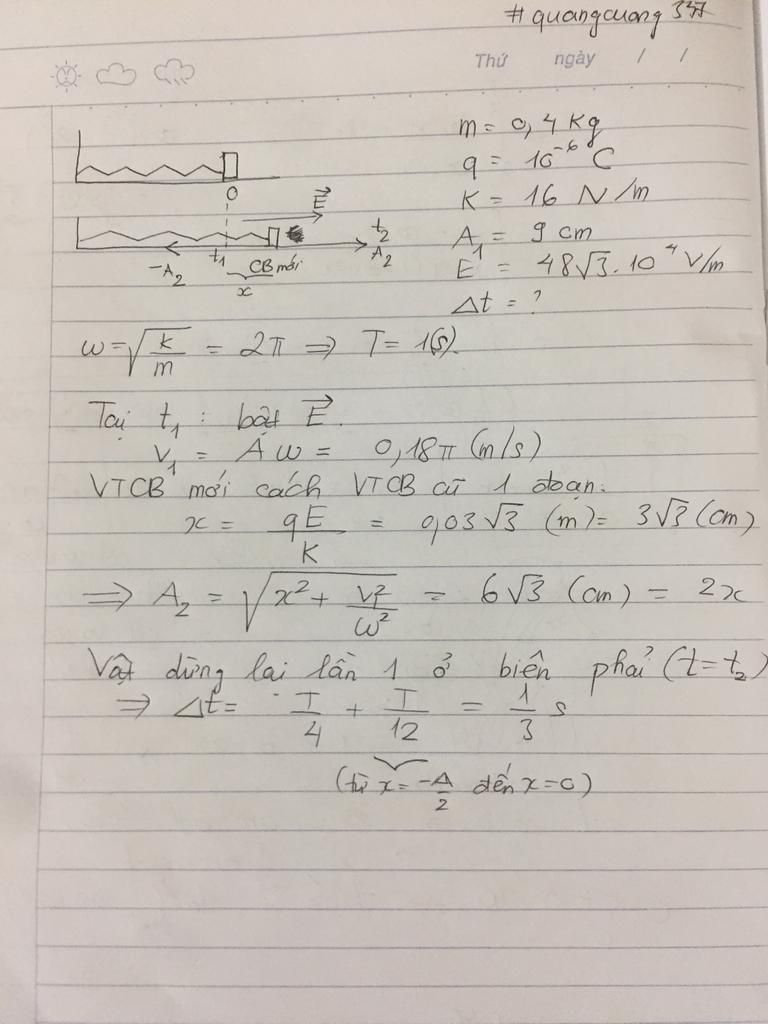 #quangcuong 347
Thứ ngày / /
m = 0,4 Kg
q = 10⁻⁶ C
K = 16 N/m
A₁ = 9 cm
E = 48√3.10⁴ V/m
Δt = ?
O
E⃗
t₂
-A₂ t₁ CB mới A₂
x
ω = √(k/m) = 2π ⇒ T = 1(s).
Tại t₁ : bật E⃗.
V₁ = Aω = 0,18π (m/s)
VTCB mới cách VTCB cũ 1 đoạn:
x = qE/K = 0,03√3 (m) = 3√3 (cm)
⇒ A₂ = √(x² + V₁²/ω²) = 6√3 (cm) = 2x
Vật dừng lại lần 1 ở biên phải (t=t₂)
⇒ Δt = T/4 + T/12 = 1/3 s
(từ x = -A/2 đến x=0)